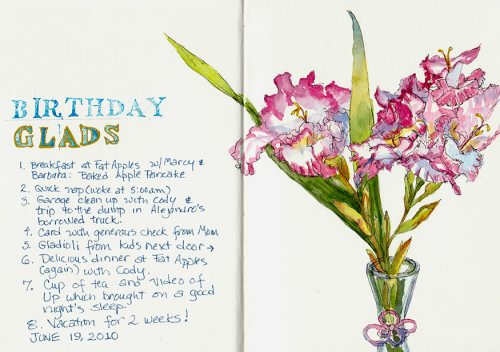 BIRTHDAY
GLADS
1. Breakfast at Fat Apples w/Marcy &
Barbara: Baked Apple Pancake
2. Quick nap (woke at 5:00am)
3. Garage clean up with Cody &
trip to the dump in Alejandro's
borrowed truck.
4. Card with generous check from Mom
5. Gladioli from kids next door →
6. Delicious dinner at Fat Apples
(again) with Cody.
7. Cup of tea and video of
Up which brought on a good
night's sleep.
8. Vacation for 2 weeks!
JUNE 19, 2010